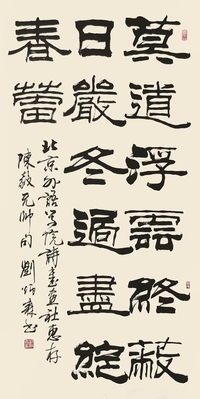 莫道浮雲終蔽
日嚴冬過盡綻
春蕾
北京外語学院書画社惠存
陳毅元帥句 劉炳森書